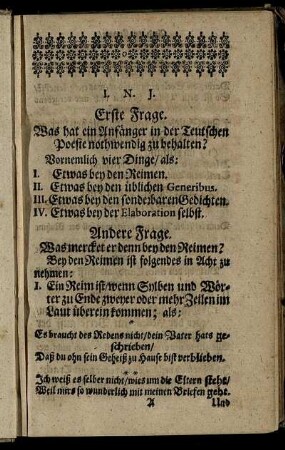 I. N. J.
Erste Frage.
Was hat ein Anfänger in der Teutschen
Poesie nothwendig zu behalten?
Vornemlich vier Dinge/als:
I. Etwas bey den Reimen.
II. Etwas bey den üblichen Generibus.
III. Etwas bey den sonderbaren Gedichten.
IV. Etwas bey der Elaboration selbst.
Andere Frage.
Was mercket er denn bey den Reimen?
Bey den Reimen ist folgendes in Acht zu
nehmen:
I. Ein Reim ist/wenn Sylben und Wör-
ter zu Ende zweyer oder mehr Zeilen im
Laut überein kommen; als:
Es braucht des Redens nicht/dein Vater hats ge-
schrieben/
Daß du ohn sein Geheiß zu Hause bist verblieben.
Ich weiß es selber nicht/wies um die Eltern steht/
Weil mirs so wunderlich mit meinen Briefen geht.
A Und